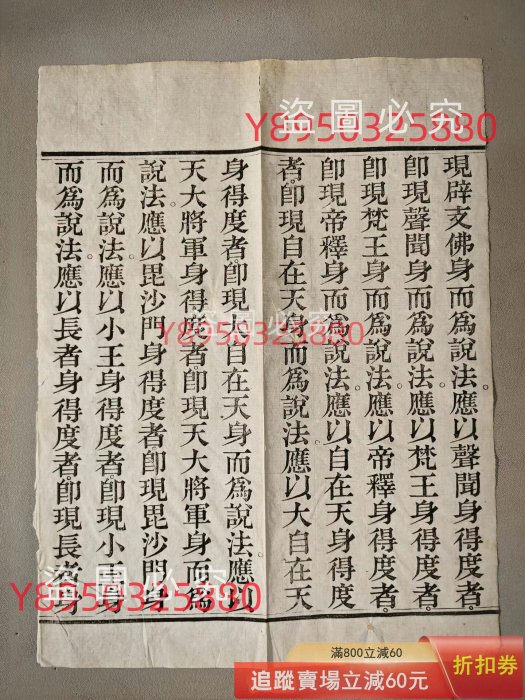 現辟支佛身而爲說法。應以聲聞身得度者。
卽現聲聞身而爲說法。應以梵王身得度者。
卽現梵王身而爲說法。應以帝釋身得度者。
卽現帝釋身而爲說法。應以自在天身得度
者。卽現自在天身而爲說法。應以大自在天
身得度者。卽現大自在天身而爲說法。應以
天大將軍身得度者。卽現天大將軍身而爲
說法。應以毘沙門身得度者。卽現毘沙門身
而爲說法。應以小王身得度者。卽現小王身
而爲說法。應以長者身得度者。卽現長者身
盜圖必究
Y8950325880
盜圖必究
Y8950325880
盜圖必究
Y8950325880
滿800立減60
追蹤賣場立減60元
折扣券